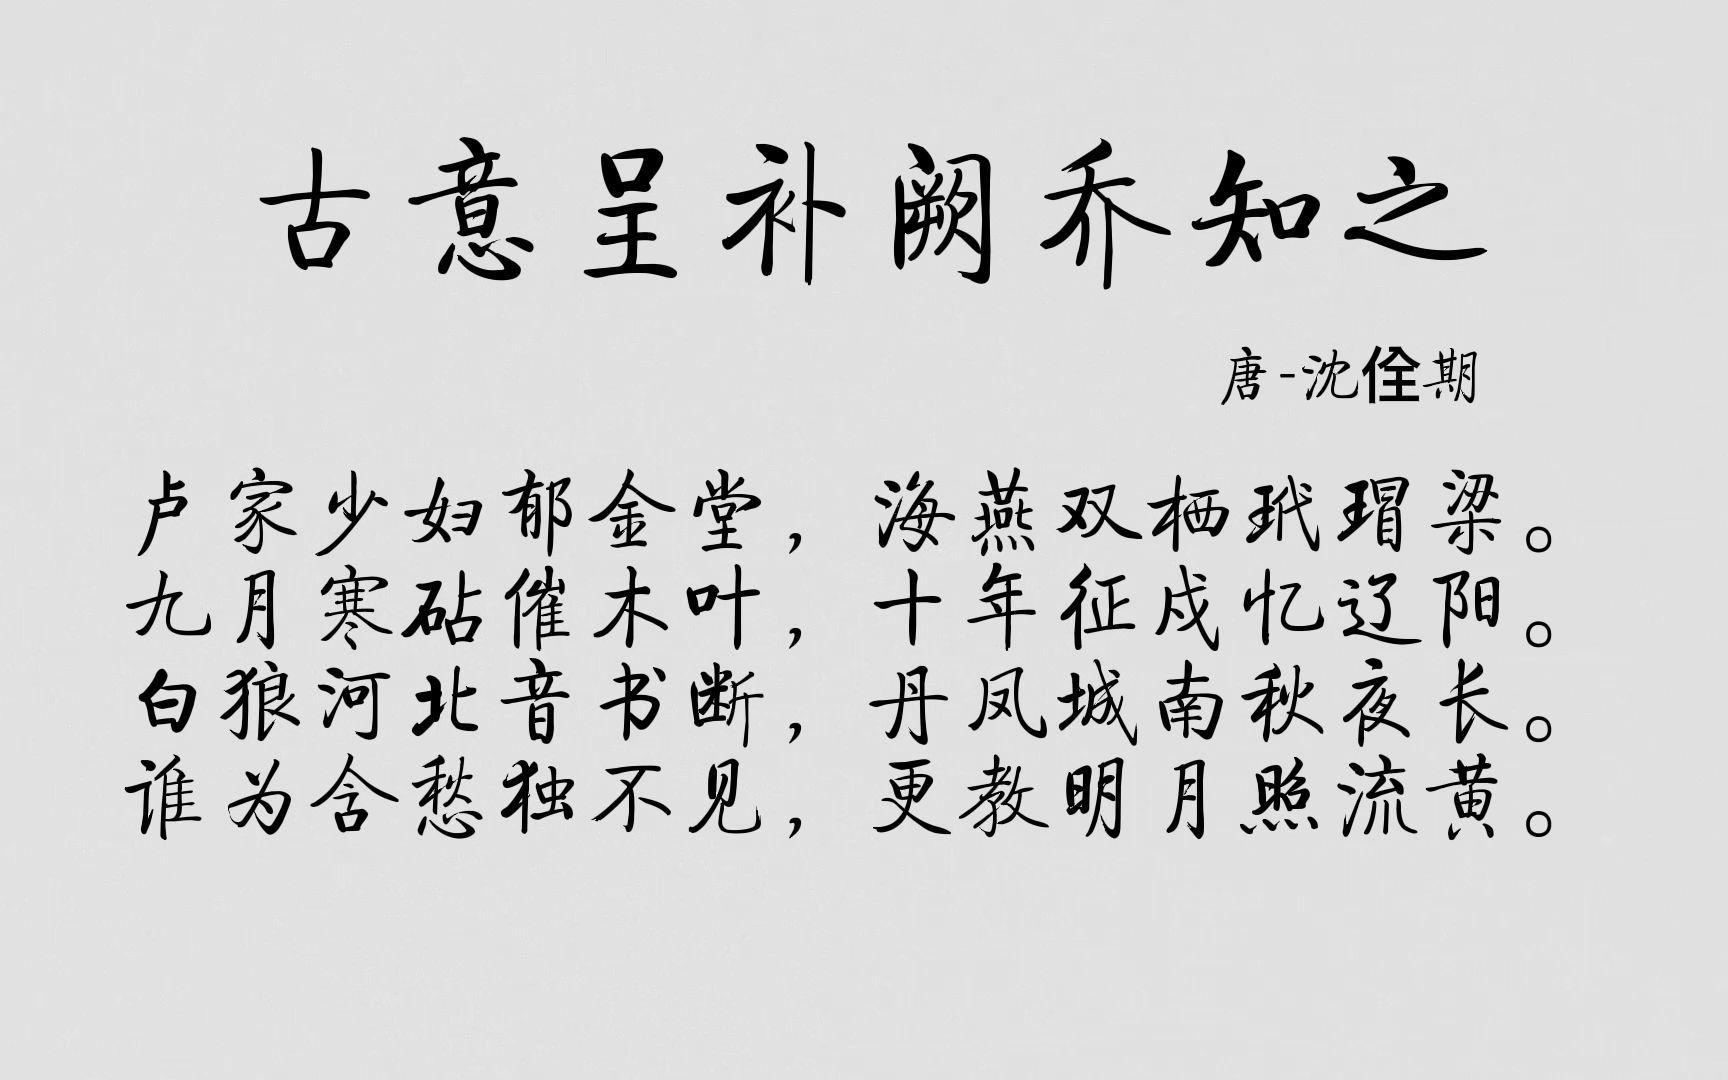 古意呈补阙乔知之
唐-沈佺期
卢家少妇郁金堂，海燕双栖玳瑁梁。
九月寒砧催木叶，十年征戍忆辽阳。
白狼河北音书断，丹凤城南秋夜长。
谁为含愁独不见，更教明月照流黄。